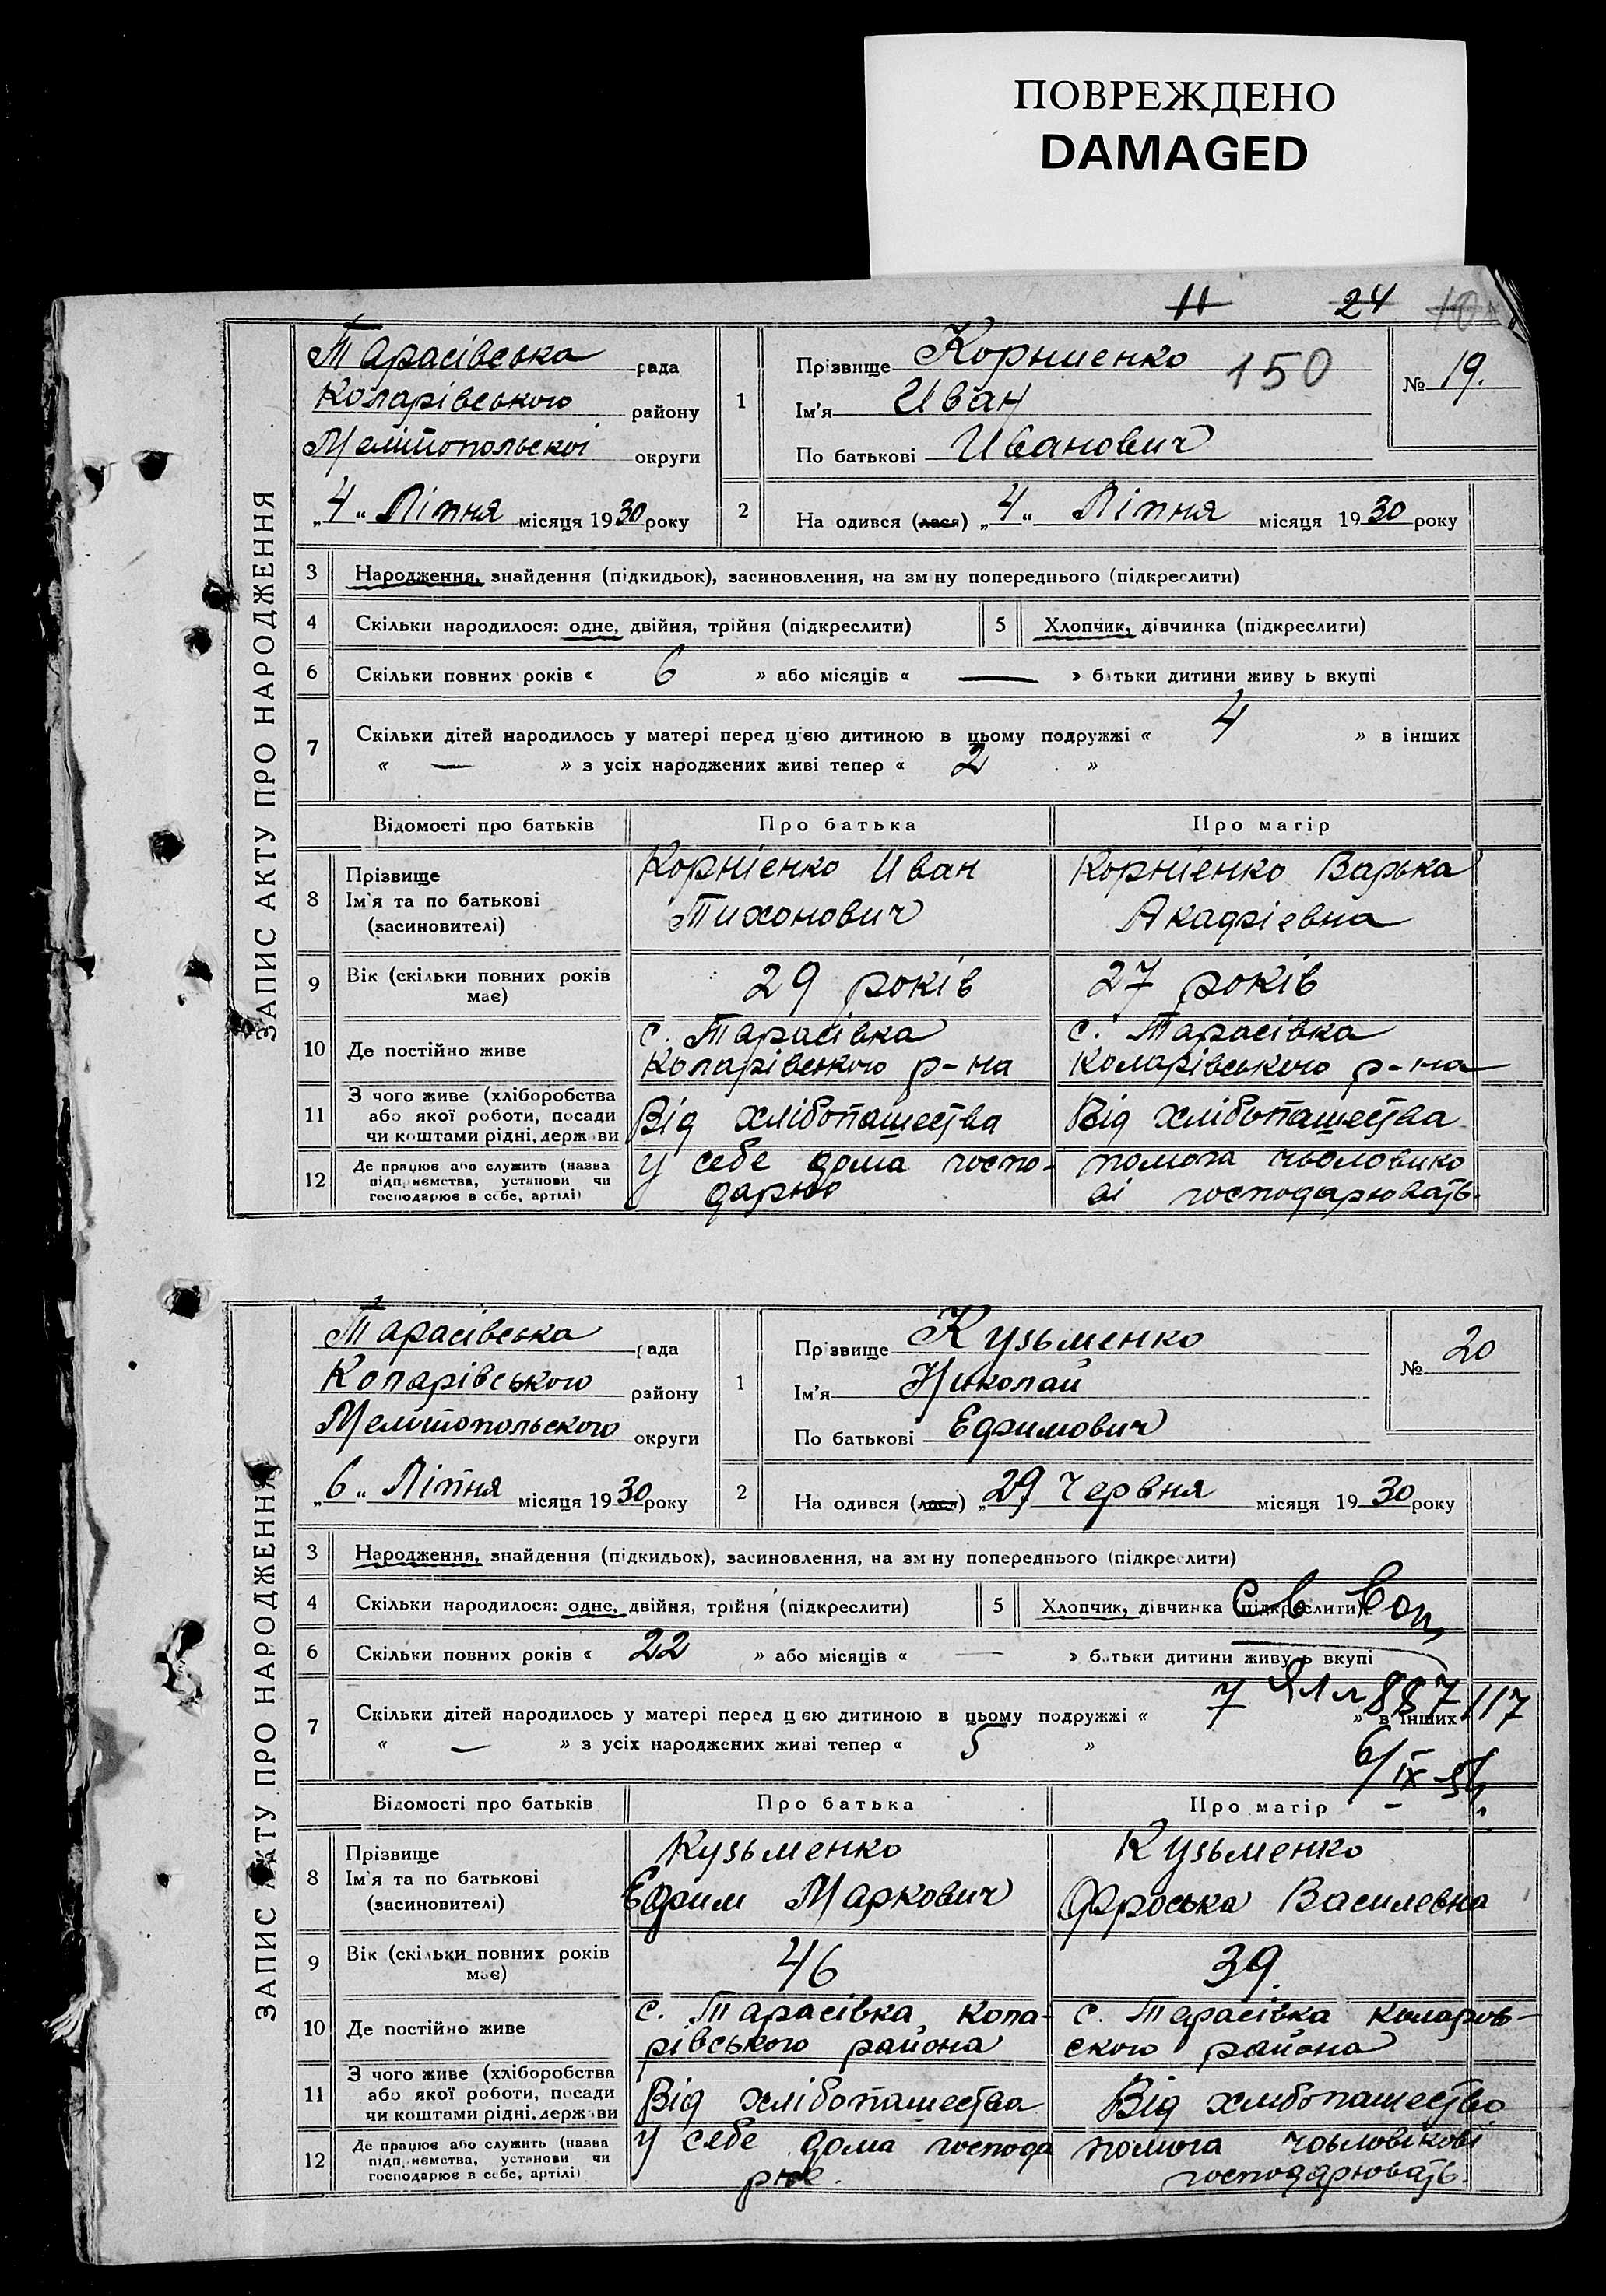 ПОВРЕЖДЕНО
DAMAGED
11 24
ЗАПИС АКТУ ПРО НАРОДЖЕННЯ
Тарасівська рада
Коларівського району
Мелітопольскоі округи
„4“ Літня місяця 1930 року
1
Прізвище Корниенко 150
Ім'я Иван
По батькові Иванович
№ 19.
2
На одився (лася) „4“ Літня місяця 1930 року
3 Народження, знайдення (підкидьок), засиновлення, на зм ну попереднього (підкреслити)
4 Скільки народилося: одне, двійня, трійня (підкреслити) 5 Хлопчик, дівчинка (підкреслити)
6 Скільки повних років « 6 » або місяців « — » батьки дитини живу ь вкупі
7 Скільки дітей народилось у матері перед цією дитиною в цьому подружжі « 4 » в інших
« — » з усіх народжених живі тепер « 2 »
Відомості про батьків Про батька Про матір
8 Прізвище
Ім'я та по батькові
(засиновителі)
Корніенко Иван
Тихонович
Корніенко Варька
Акадріевна
9 Вік (скільки повних років
має)
29 років
27 років
10 Де постійно живе
с. Тарасівка
Коларівського р-на
с. Тарасівка
Коларівського р-на
11 З чого живе (хліборобства
або якої роботи, посади
чи коштами рідні, держави
Від хлібопашества
Від хлібопашества
12 Де працює або служить (назва
підприємства, установи чи
господарює в себе, артілі)
у себе дома госпо-
дарює
помога чьоловико
ві господарювать.
ЗАПИС АКТУ ПРО НАРОДЖЕННЯ
Тарасівська рада
Коларівського району
Мелітопольского округи
„6“ Літня місяця 1930 року
1
Прізвище Кузьменко
Ім'я Николай
По батькові Ефимович
№ 20
2
На одився (лася) „29 Червня місяця 1930 року
3 Народження, знайдення (підкидьок), засиновлення, на зм ну попереднього (підкреслити)
4 Скільки народилося: одне, двійня, трійня (підкреслити) 5 Хлопчик, дівчинка (підкреслити)
6 Скільки повних років « 22 » або місяців « — » батьки дитини живу ь вкупі
7 Скільки дітей народилось у матері перед цією дитиною в цьому подружжі « 7 » в інших
887117
« — » з усіх народжених живі тепер « 5 »
6/IX-54.
Відомості про батьків Про батька Про матір
8 Прізвище
Ім'я та по батькові
(засиновителі)
Кузьменко
Ефрим Маркович
Кузьменко
Фроська Василевна
9 Вік (скільки повних років
має)
46
39.
10 Де постійно живе
с. Тарасівка, Кола-
рівського района
с. Тарасівка Коларов-
ского района
11 З чого живе (хліборобства
або якої роботи, посади
чи коштами рідні, держави
Від хлібопашества
Від хлібопашество
12 Де працює або служить (назва
підприємства, установи чи
господарює в себе, артілі)
у себе дома господа
рює.
помога чоьловікові
господарювать.